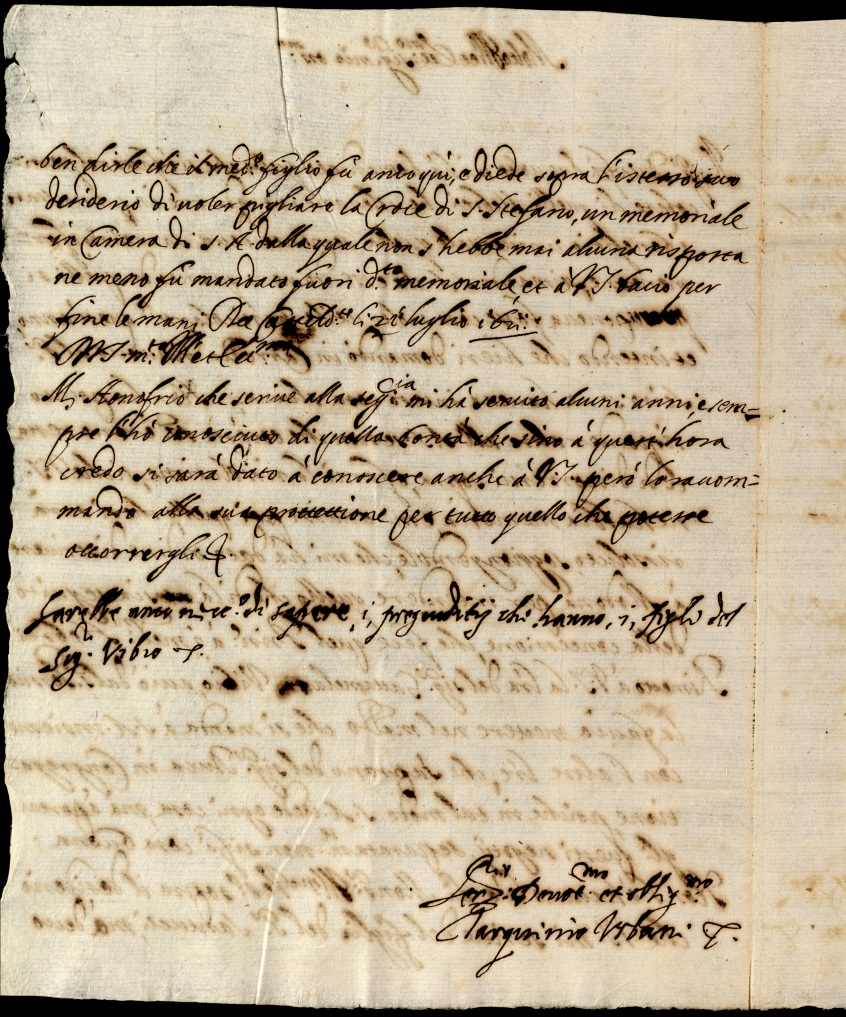 ben dirle che il med.º figlio fù anco quì, e diede sopra l'istesso suo
desiderio di voler pigliare la Croce di S. Stefano, un memoriale
in Camera di S. A. dalla quale non s'hebbe mai alcuna risposta
ne meno fù mandato fuori d.to memoriale et à V.S. bacio per
fine le mani li 21 luglio
Di V.S. m.to Ill.
M. Honofrio che scrive alla seg.cia mi hà servito alcuni anni, e sem=
pre l'hò conosciuto di quella bontà che sino à quest'hora
credo si sarà dato à conoscere anche à V.S. però lo racom=
mando alla sua protettione per tutto quello che potesse
occorrergli
Sarebbe anco nec.º di sapere, i, pregiuditij che hanno, i, figli del
Sig.r Vibio
Ser.re Devot.mo et oblig.mo
Tarquinio Urbani